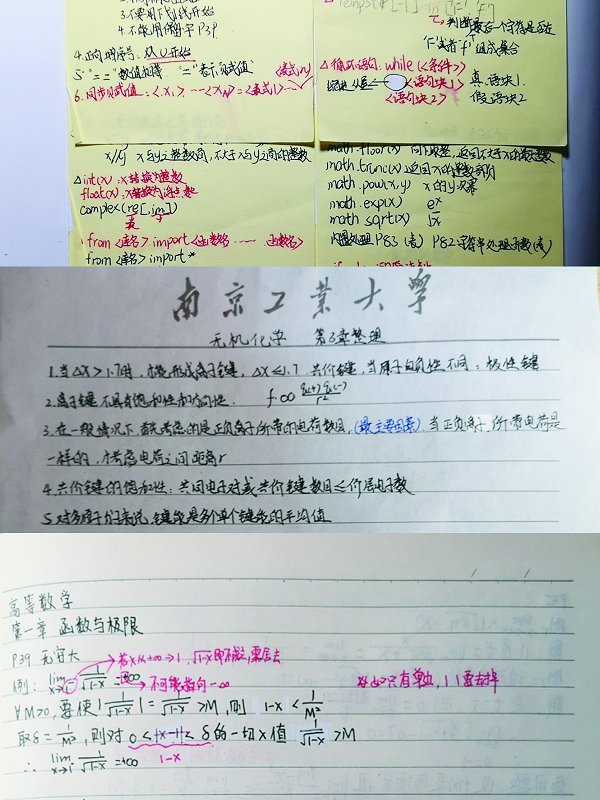 3.不要用下划线开始
4.不能用保留字 P39
4.正向增序号,从0开始
5."=="数值相等 "="表示赋值
6.同步赋值:<X1>,…<XN>=<表式1>…
<表式N>
判断最后一个字符是否在
△循环语句:while <条件>
<语句块1> 真.语块1
<语句块2> 假.语块2
x//y x与y之整数商,不大于x与y之商的整数
△int(x):x转换为整数
float(x):x转换为浮点数
complex(re[,im])
from <库名> import <函数名…函数名>
from <库名> import *
math.floor(x) 向下取整,返回不大于x的最大整数
math.trunc(x) 返回x的整数部分
math.pow(x,y) x的y次幂
math.exp(x) e^x
math.sqrt(x) √x
P83(表) P82字符串处理函数(表)
南京工业大学
无机化学 第3章整理
1.当△X>1.7时,才能形成离子键,△X≤1.7 共价键,当原子电负性不同:极性键
2.离子键不具有饱和性和方向性. f∝(q(+)·q(-))/r²
3.在一般情况下,首先考虑的是正负离子所带的电荷数目,(最主要因素),当正负离子所带电荷是
一样的,才考虑电荷之间距离r
4.共价键的饱和性:共用电子对或共价键数目≤价层电子数
5.对多原子分子来说,键能是多个单个键能的平均值
高等数学
第一章 函数与极限
P39 无穷大
例:lim x→1⁻ 1/√(1-x) = +∞
不可能指向-∞
∀M>0,要使|1/√(1-x)|=1/√(1-x)>M,则 1-x<1/M²
取δ=1/M²,则对0<|x-1|<δ的一切x值 1/√(1-x)>M
1-x
∴ lim x→1⁻ 1/√(1-x)=+∞